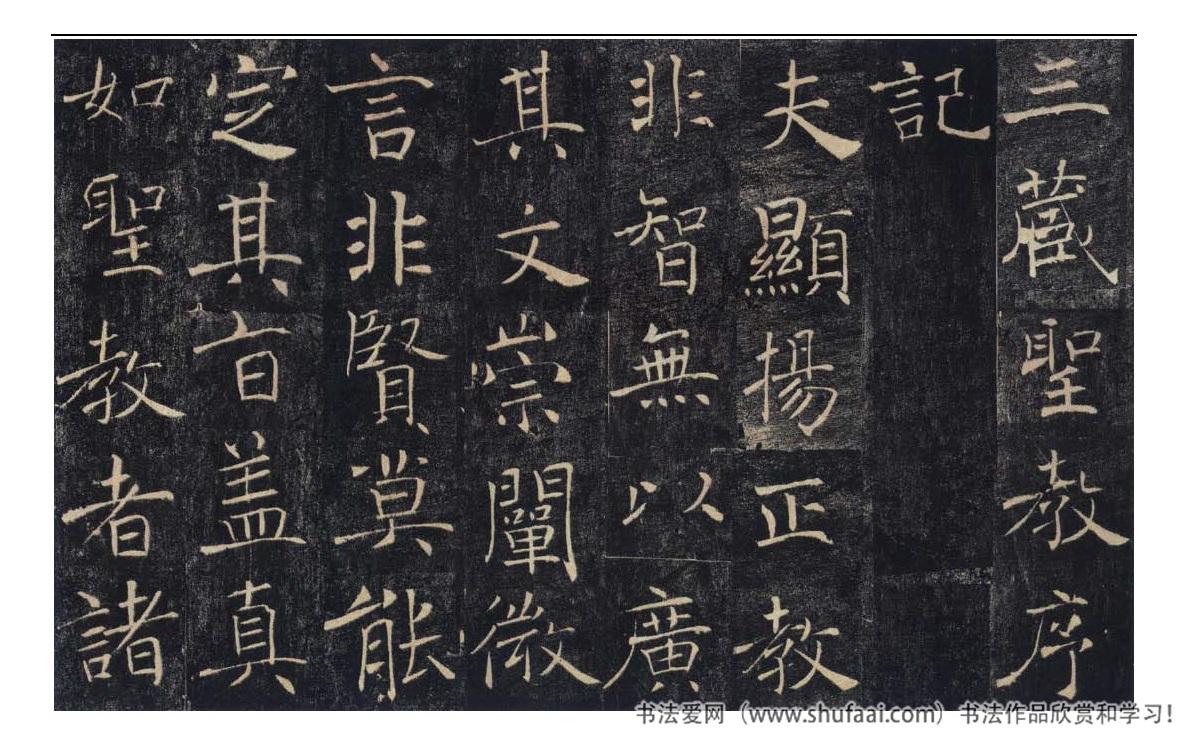 三藏聖教序
記
夫顯揚正教
非智無以廣
其文崇闡微
言非賢莫能
定其旨盖真
如聖教者諸
书法爱网（www.shufaai.com）书法作品欣赏和学习！